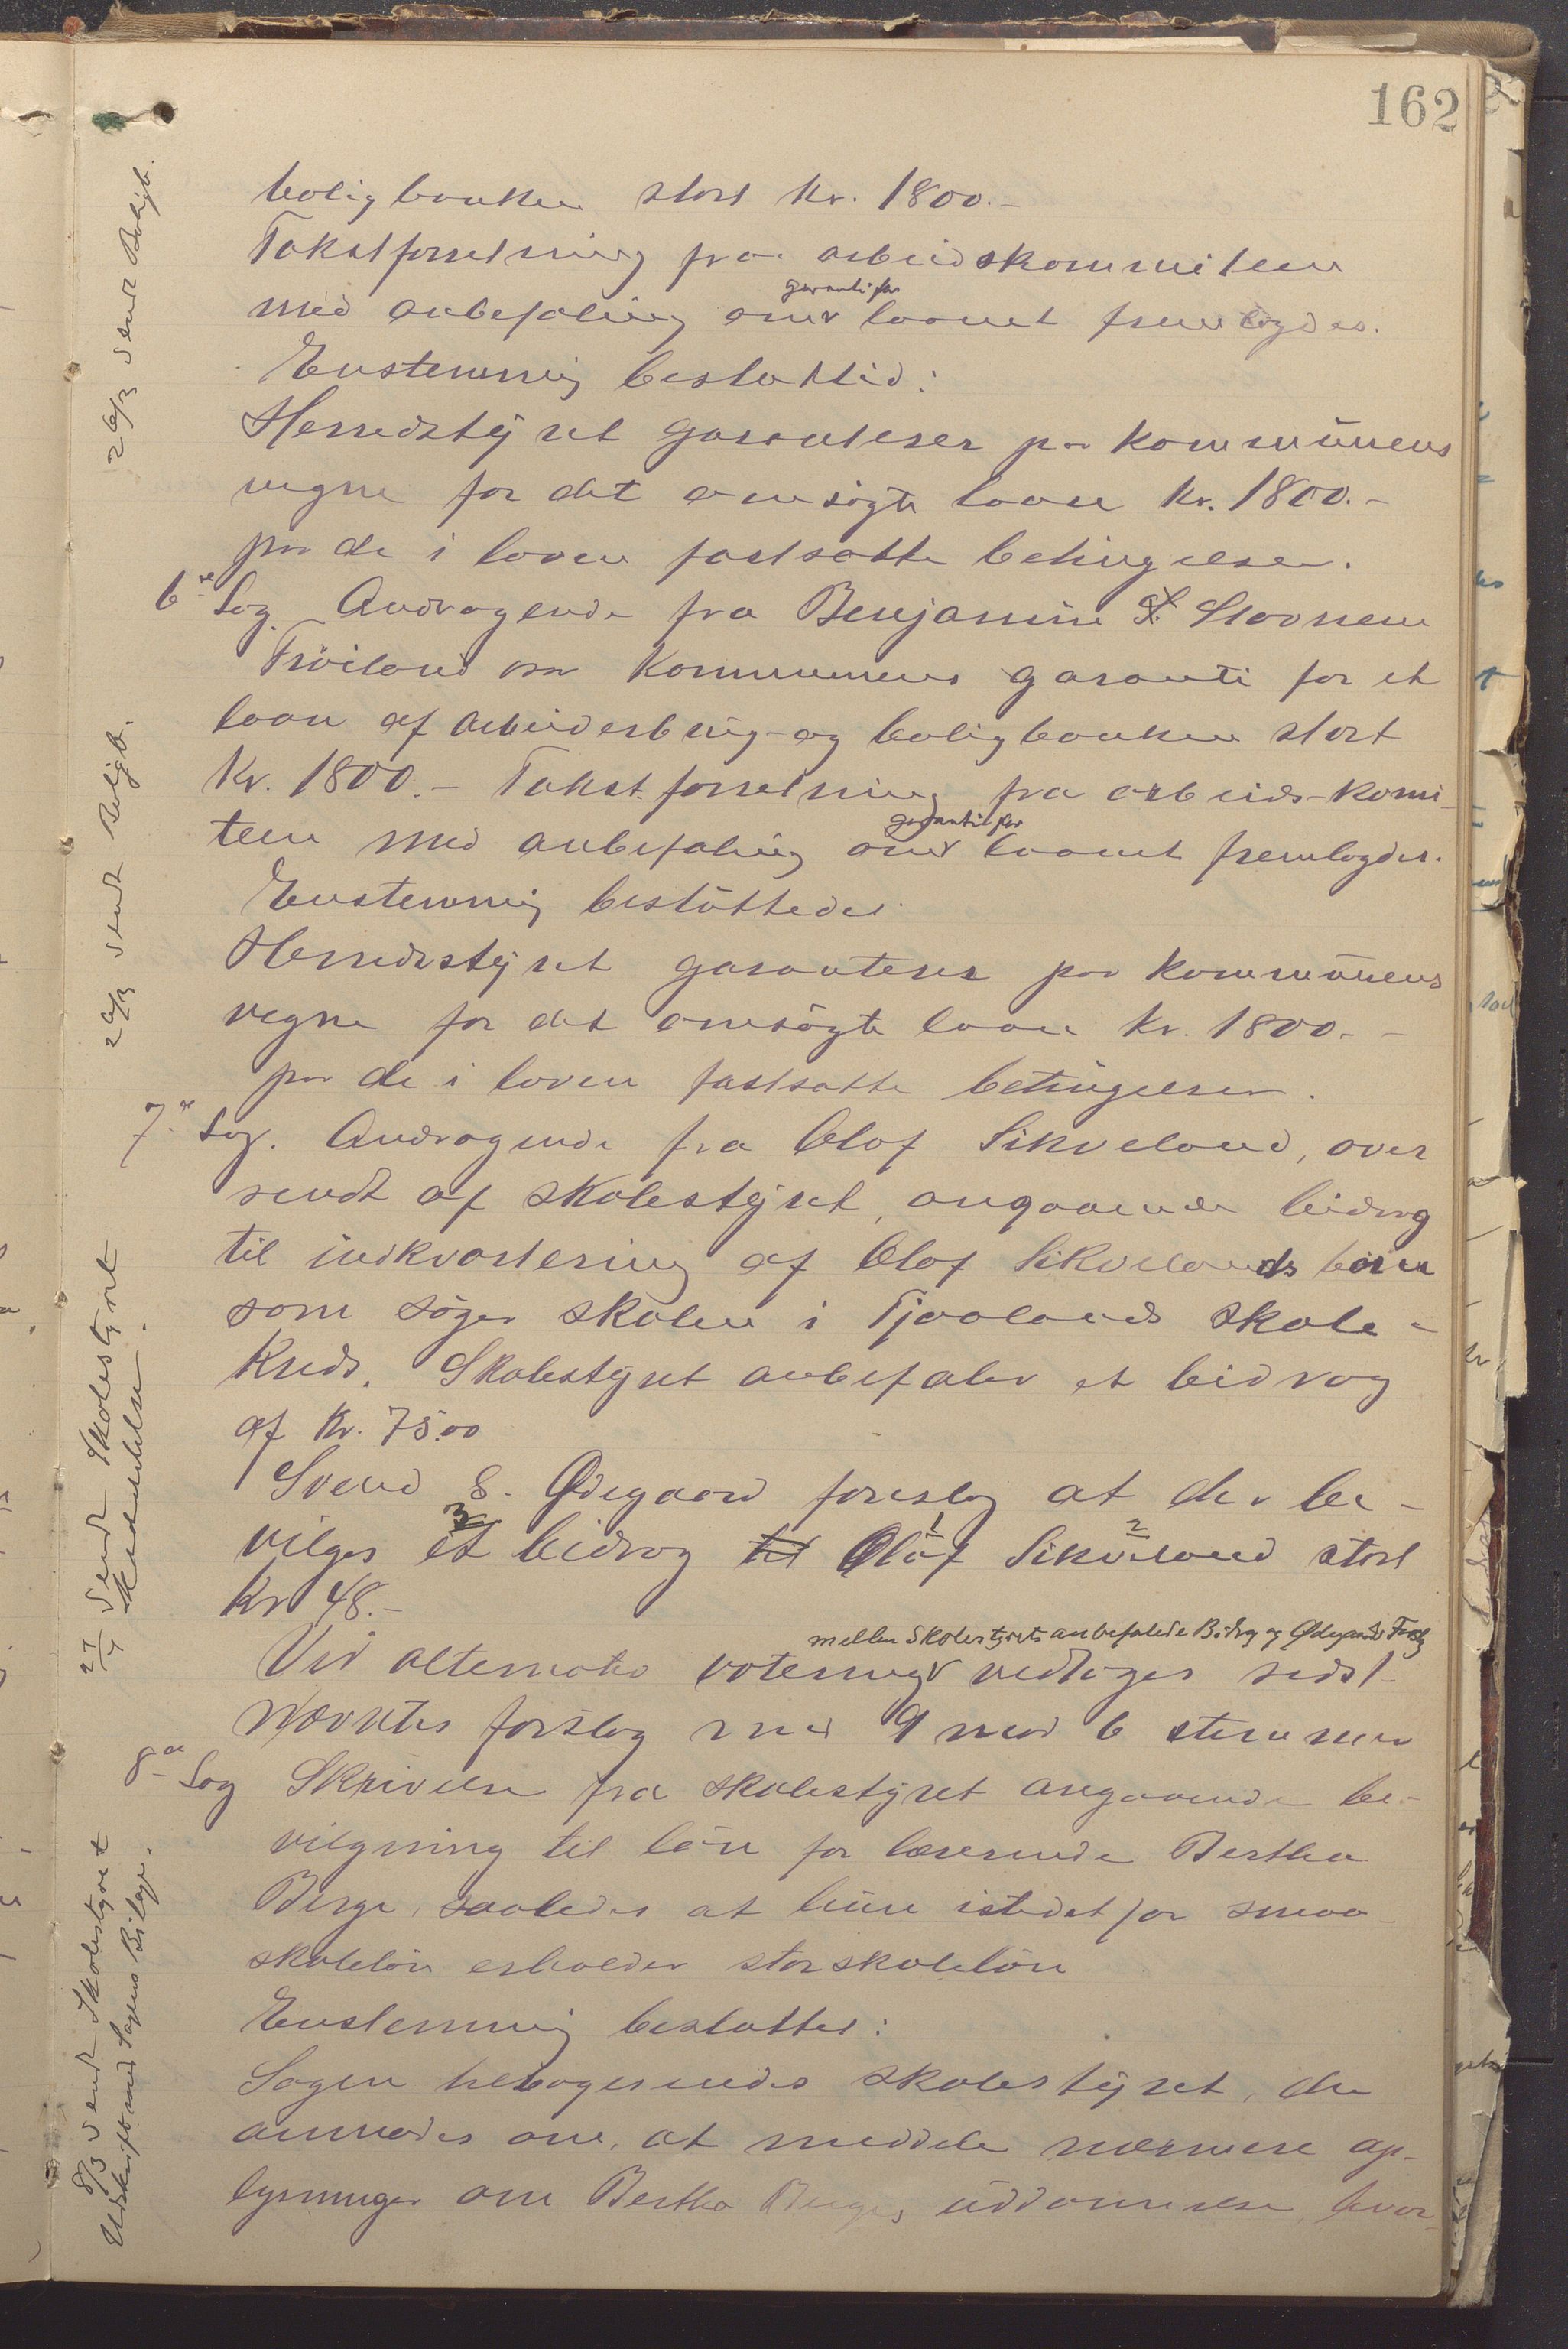 162
boligbanken stort kr. 1800.-
Takstforretning fra arbeidskommiteen
garanti for
med anbefaling om laanet fremlagdes.
Enstemmig besluttid:
Herredstyret garanterer paa kommunens
vegne for det ansøgte laan kr. 1800.-
paa de i loven fastsatte betingelser.
6te Sag. Andragende fra Benjamin S. Stavnem
Tröiland om Kommunens garanti for et
laan af arbeiderbrug- og boligbanken stort
Kr. 1800.- Takst.forretning fra arbeids-komi-
garanti for
teen med anbefaling om laanet fremlagdes.
Enstemmig besluttedes
Herredsstyret garanterer paa kommunens
vegne for det ansøgte laan kr. 1800.-
paa de i loven fastsatte betingelser.
7de Sag. Andragende fra Olaf Sikveland, over
sendt af skolestyret, angaaende bidrag
til indkvartering af Olaf Sikvelands børn
som søger skolen i Tjaalands skole-
Kreds. Skolestyret anbefaler et bidrag
af Kr. 75.00
Svend S. Ødegaard foreslog at der be-
3 1 2
vilges et bidrag til Olaf Sikveland stort
Kr 48.-
mellem Skolestyrets anbefalede Bidrag og Ødegaards Forslag
Ved alternativ votering vedtoges sidst
nævntes forslag med 9 mod 6 stemmer
8de Sag Skrivelse fra skolestyret angaaende be-
vilgning til løn for lærerinde Bertha
Berge, saaledes at hun istedet for smaa-
skoleløn erholder storskoleløn
Enstemmig besluttet:
Sagen tilbagesendes skolestyret, der
anmodes om, at meddele nærmere op-
lysninger om Bertha Berges uddannelse, hvor-
26/3 sendt Boligb.
26/3 sendt Boligb.
27/4 Sendt Skolestyret
Meddelelse.
8/3 sendt Skolestyret
Udskrift med Sagens Bilage.